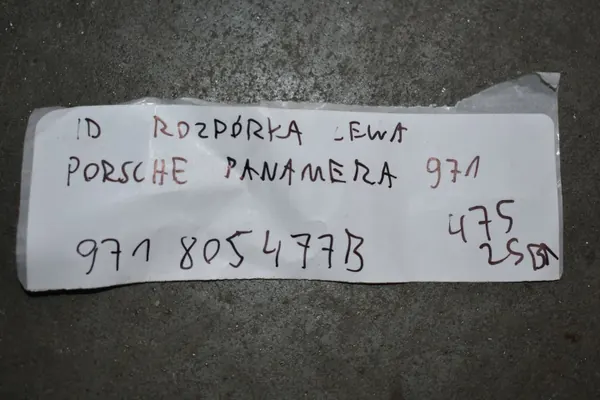 ID ROZPÓRKA LEWA
PORSCHE PANAMERA 971
971 805 477B
475